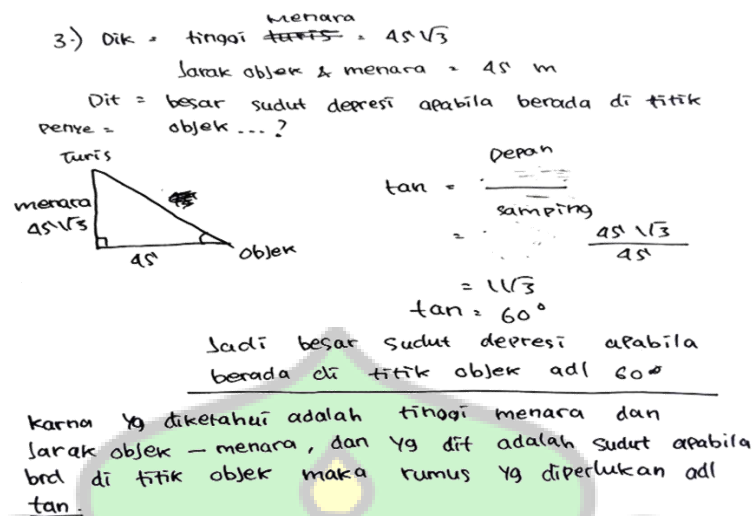 3.) Dik = tinggi turis menara = 45√3
Jarak objek & menara = 45 m
Dit = besar sudut depresi apabila berada di titik
objek ...?
Penye =
Turis
menara
45√3
45
objek
tan = Depan
samping
= 45√3
45
= √3
tan = 60°
Jadi besar sudut depresi apabila
berada di titik objek adl 60°
Karna yg diketahui adalah tinggi menara dan
Jarak objek – menara, dan yg dit adalah sudut apabila
brd di titik objek maka rumus yg diperlukan adl
tan.